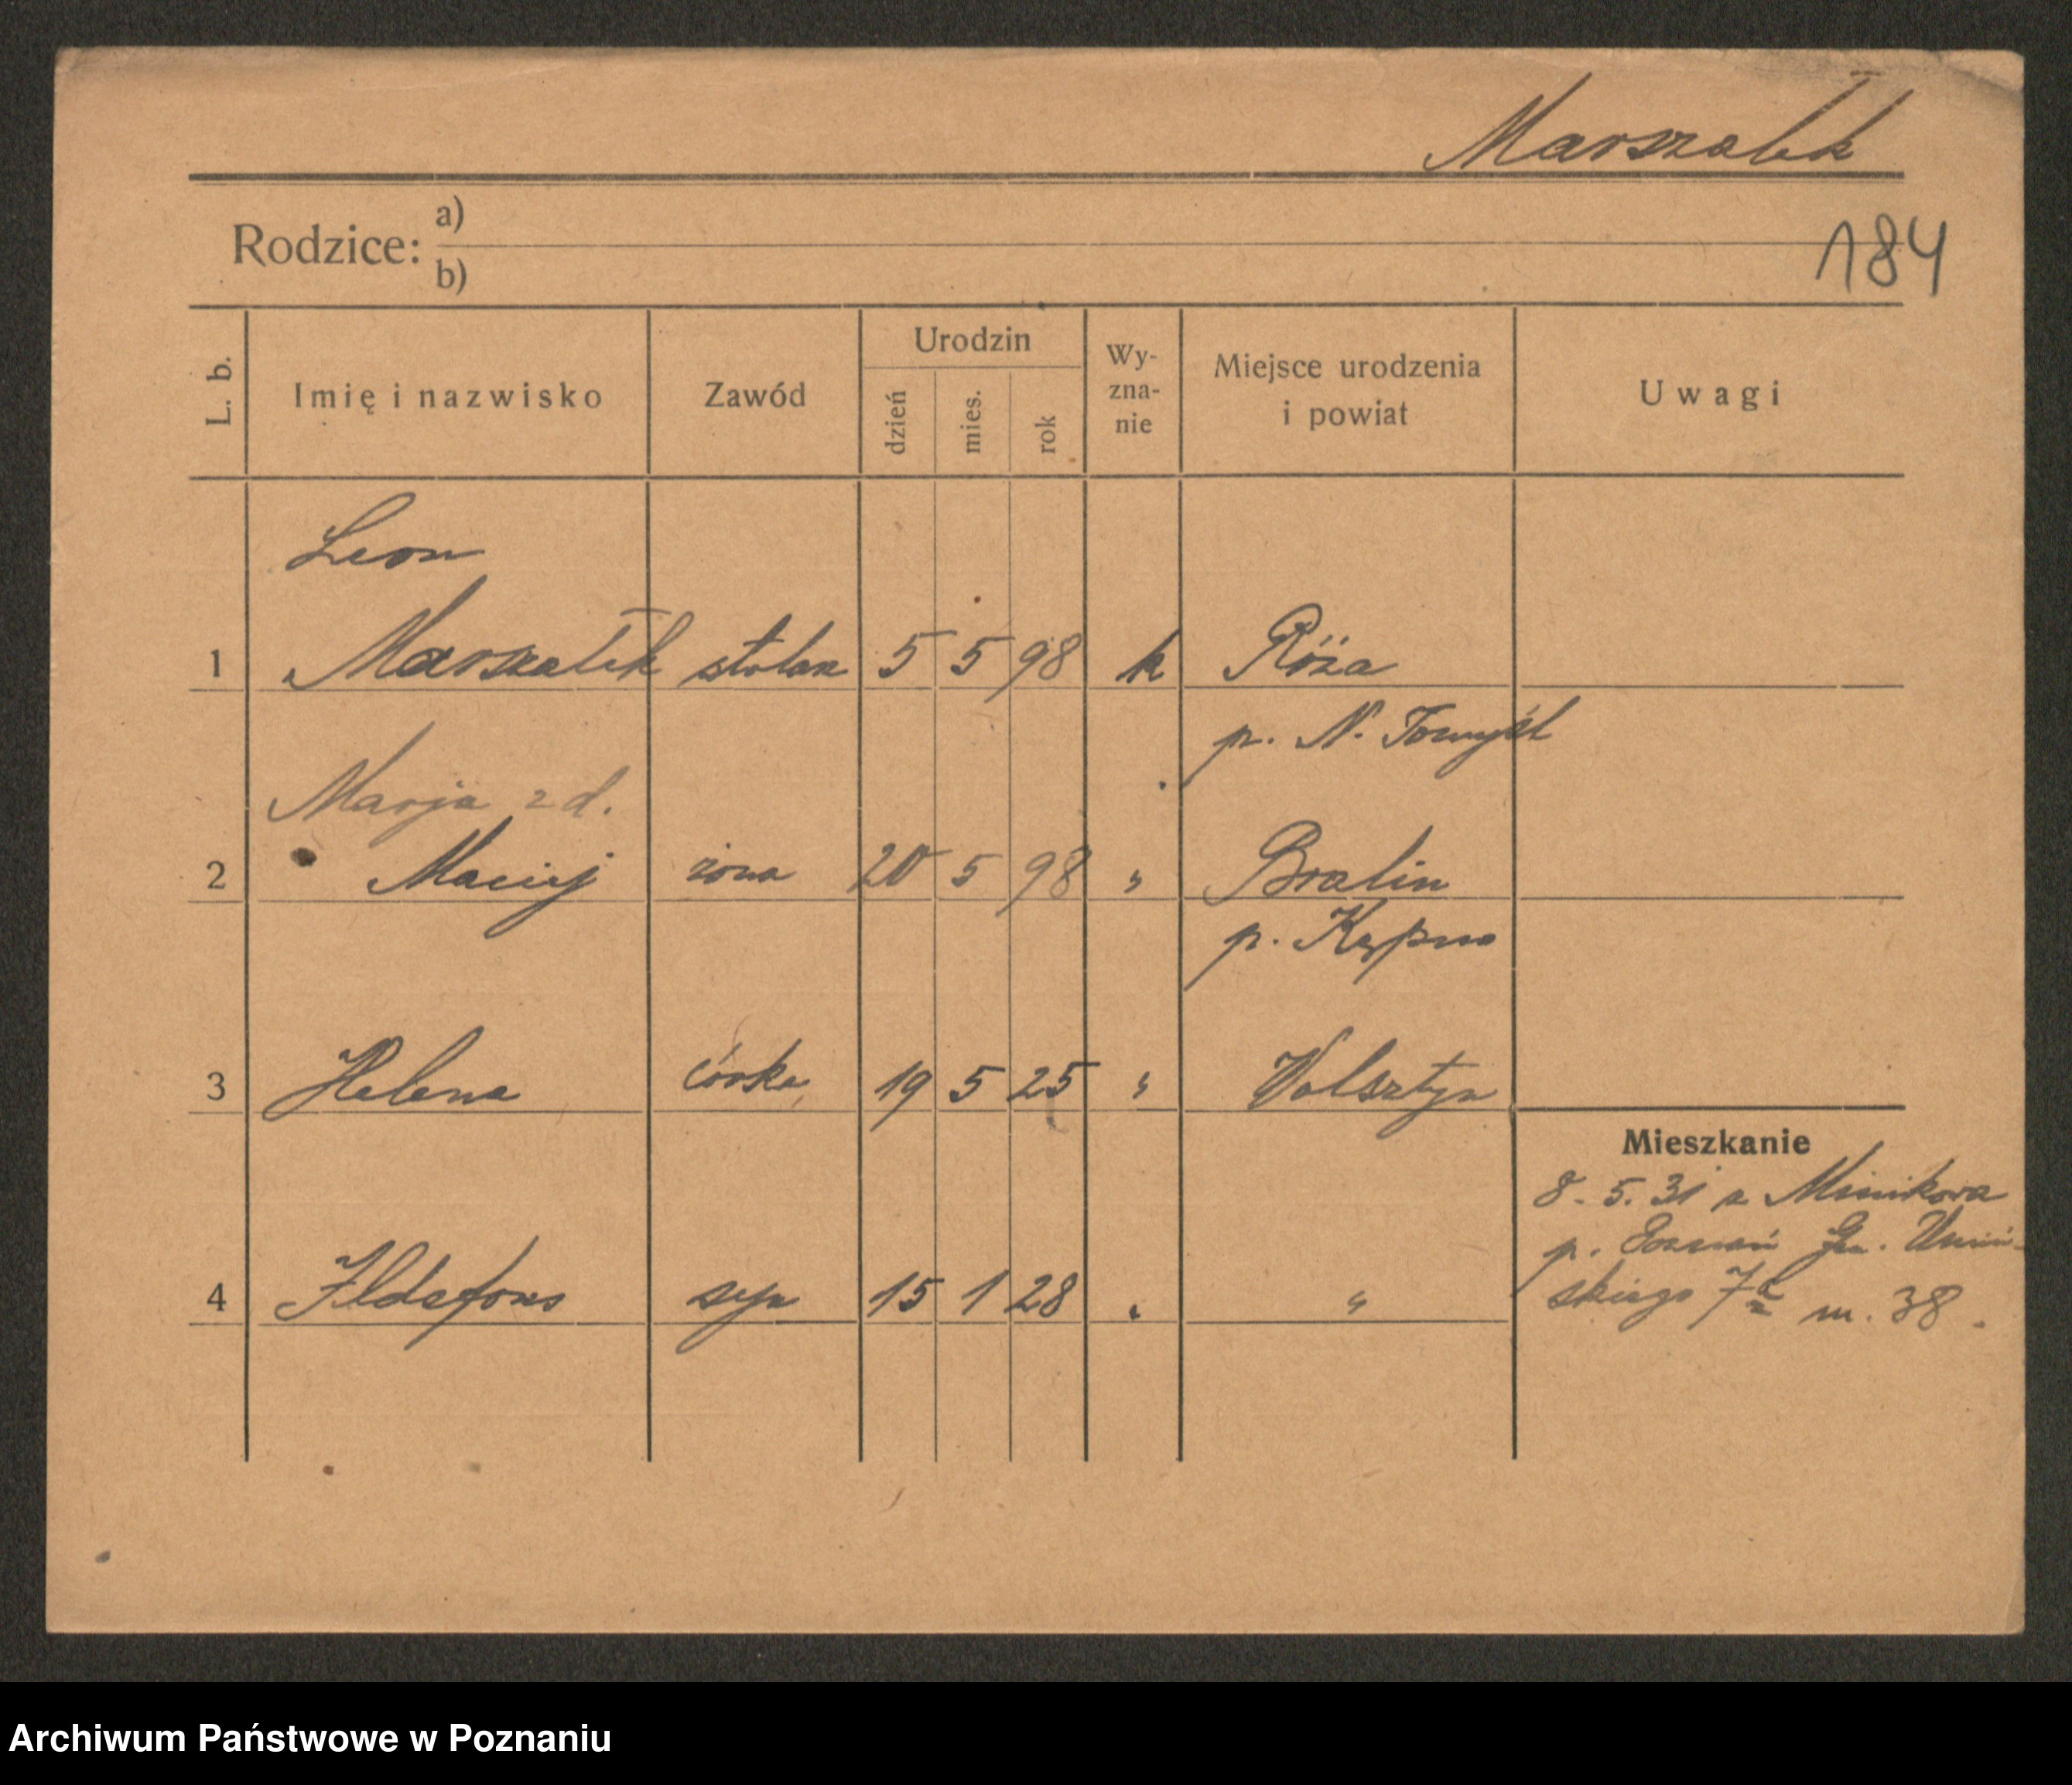 Marszałek
184
Rodzice: a)
b)
L. b. Imię i nazwisko Zawód Urodzin dzień mies. rok Wy-zna-nie Miejsce urodzenia i powiat Uwagi
Leon
1 Marszałek stolarz 5 5 98 k Róża
p. N. Tomyśl
Marja z d.
2 Maciej żona 20 5 98 " Bralin
p. Kępno
3 Helena córka 19 5 25 " Wolsztyn
Mieszkanie
8. 5. 31 z Minikowa
p. Poznań Gen. Umiń-
4 Ildefons syn 15 1 28 " "
skiego 7 m. 38.
Archiwum Państwowe w Poznaniu